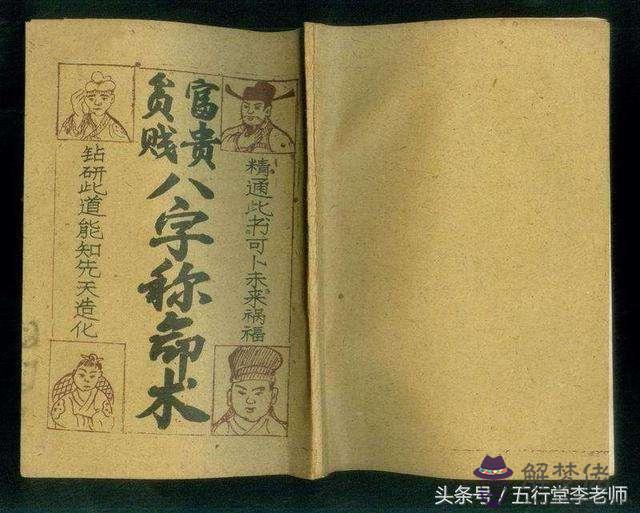 精通此书可卜未来祸福
富貴
貧贱
八字称命术
钻研此道能知先天造化
解梦佬
头条号／五行堂李老师